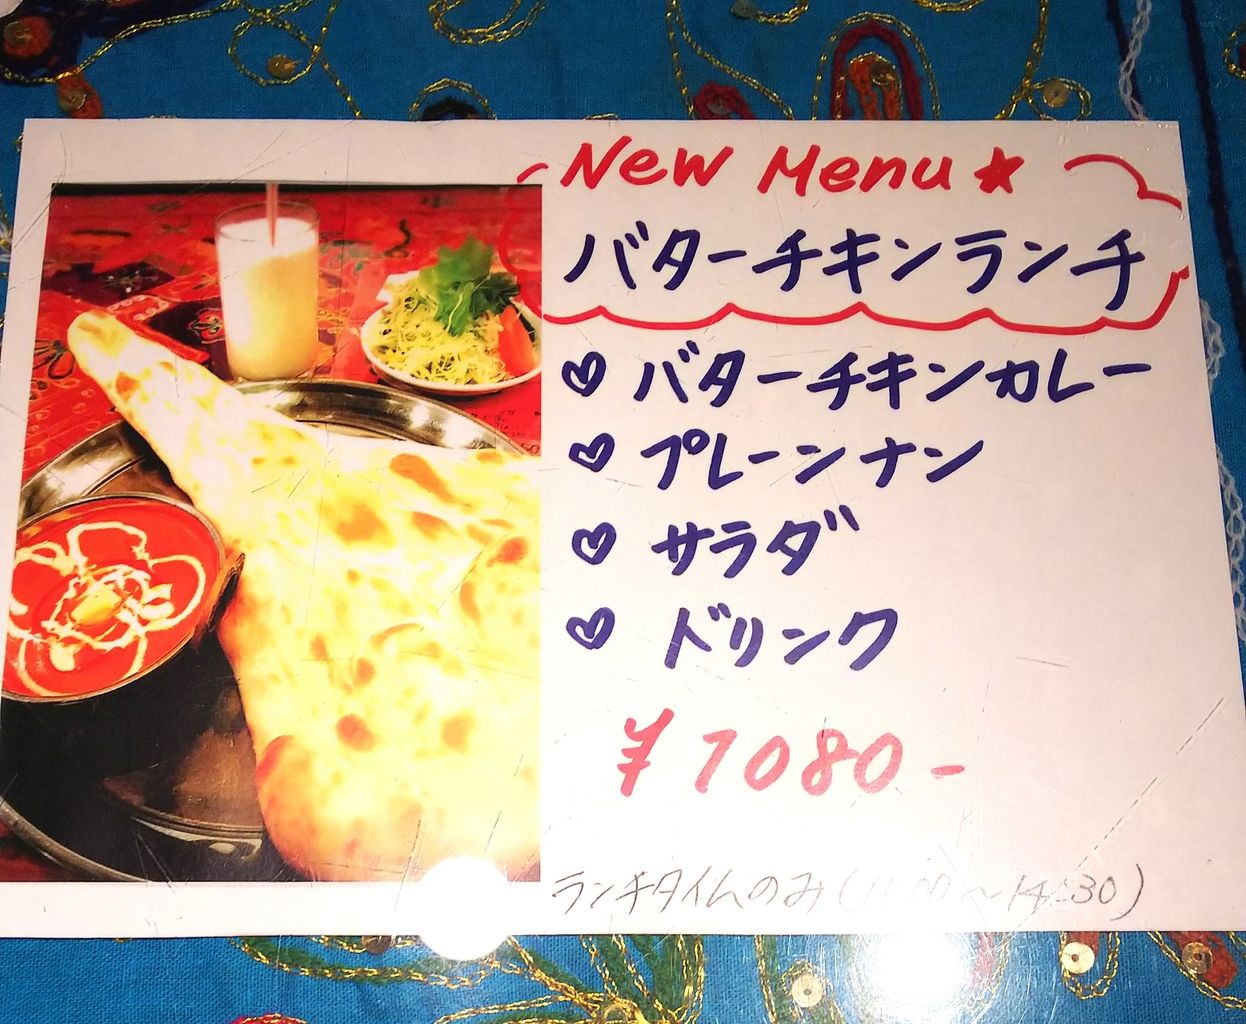 New Menu★
バターチキンランチ
♡ バターチキンカレー
♡ プレーンナン
♡ サラダ
♡ ドリンク
¥1080-
ランチタイムのみ(11:00~14:30)